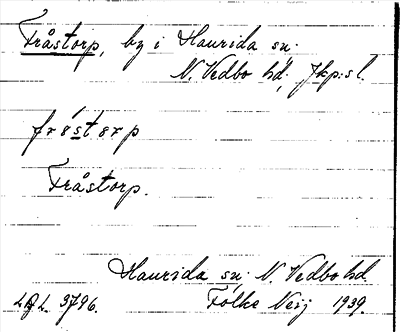 Fråstorp, by i Haurida sn.
N. Vedbo hd; Jkp:s l.
fróstơrp
Fråstorp.
Haurida sn; N. Vedbo hd.
3796. Folke Neij 1939.